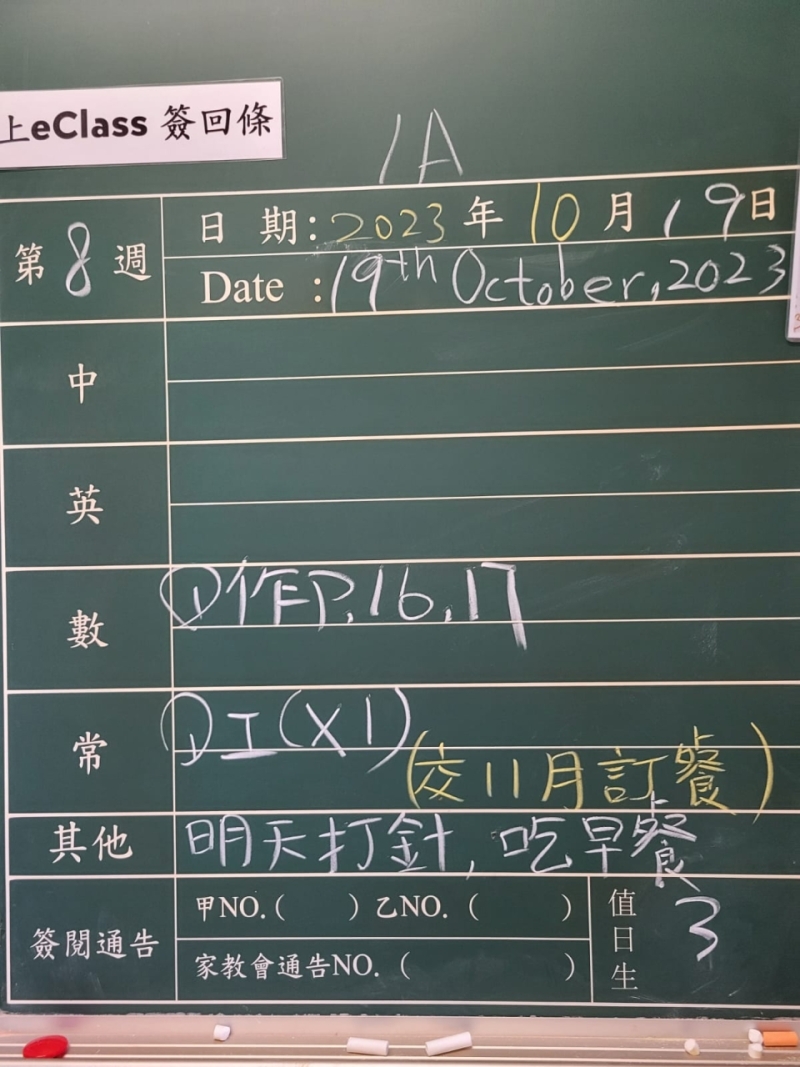 上eClass 簽回條
1A
第8週
日期：2023年10月19日
Date：19th October, 2023
中
英
數
①作P.16,17
常
①工(X1)
(交11月訂餐)
其他
明天打針，吃早餐
簽閱通告
甲NO.（　　）乙NO.（　　）
家教會通告NO.（　　）
值日生
3